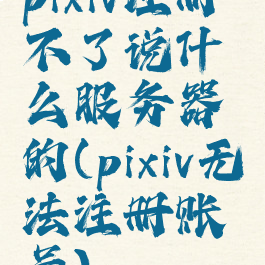 pixiv注册
不了说什
么服务器
的(pixiv无
法注册账
号)